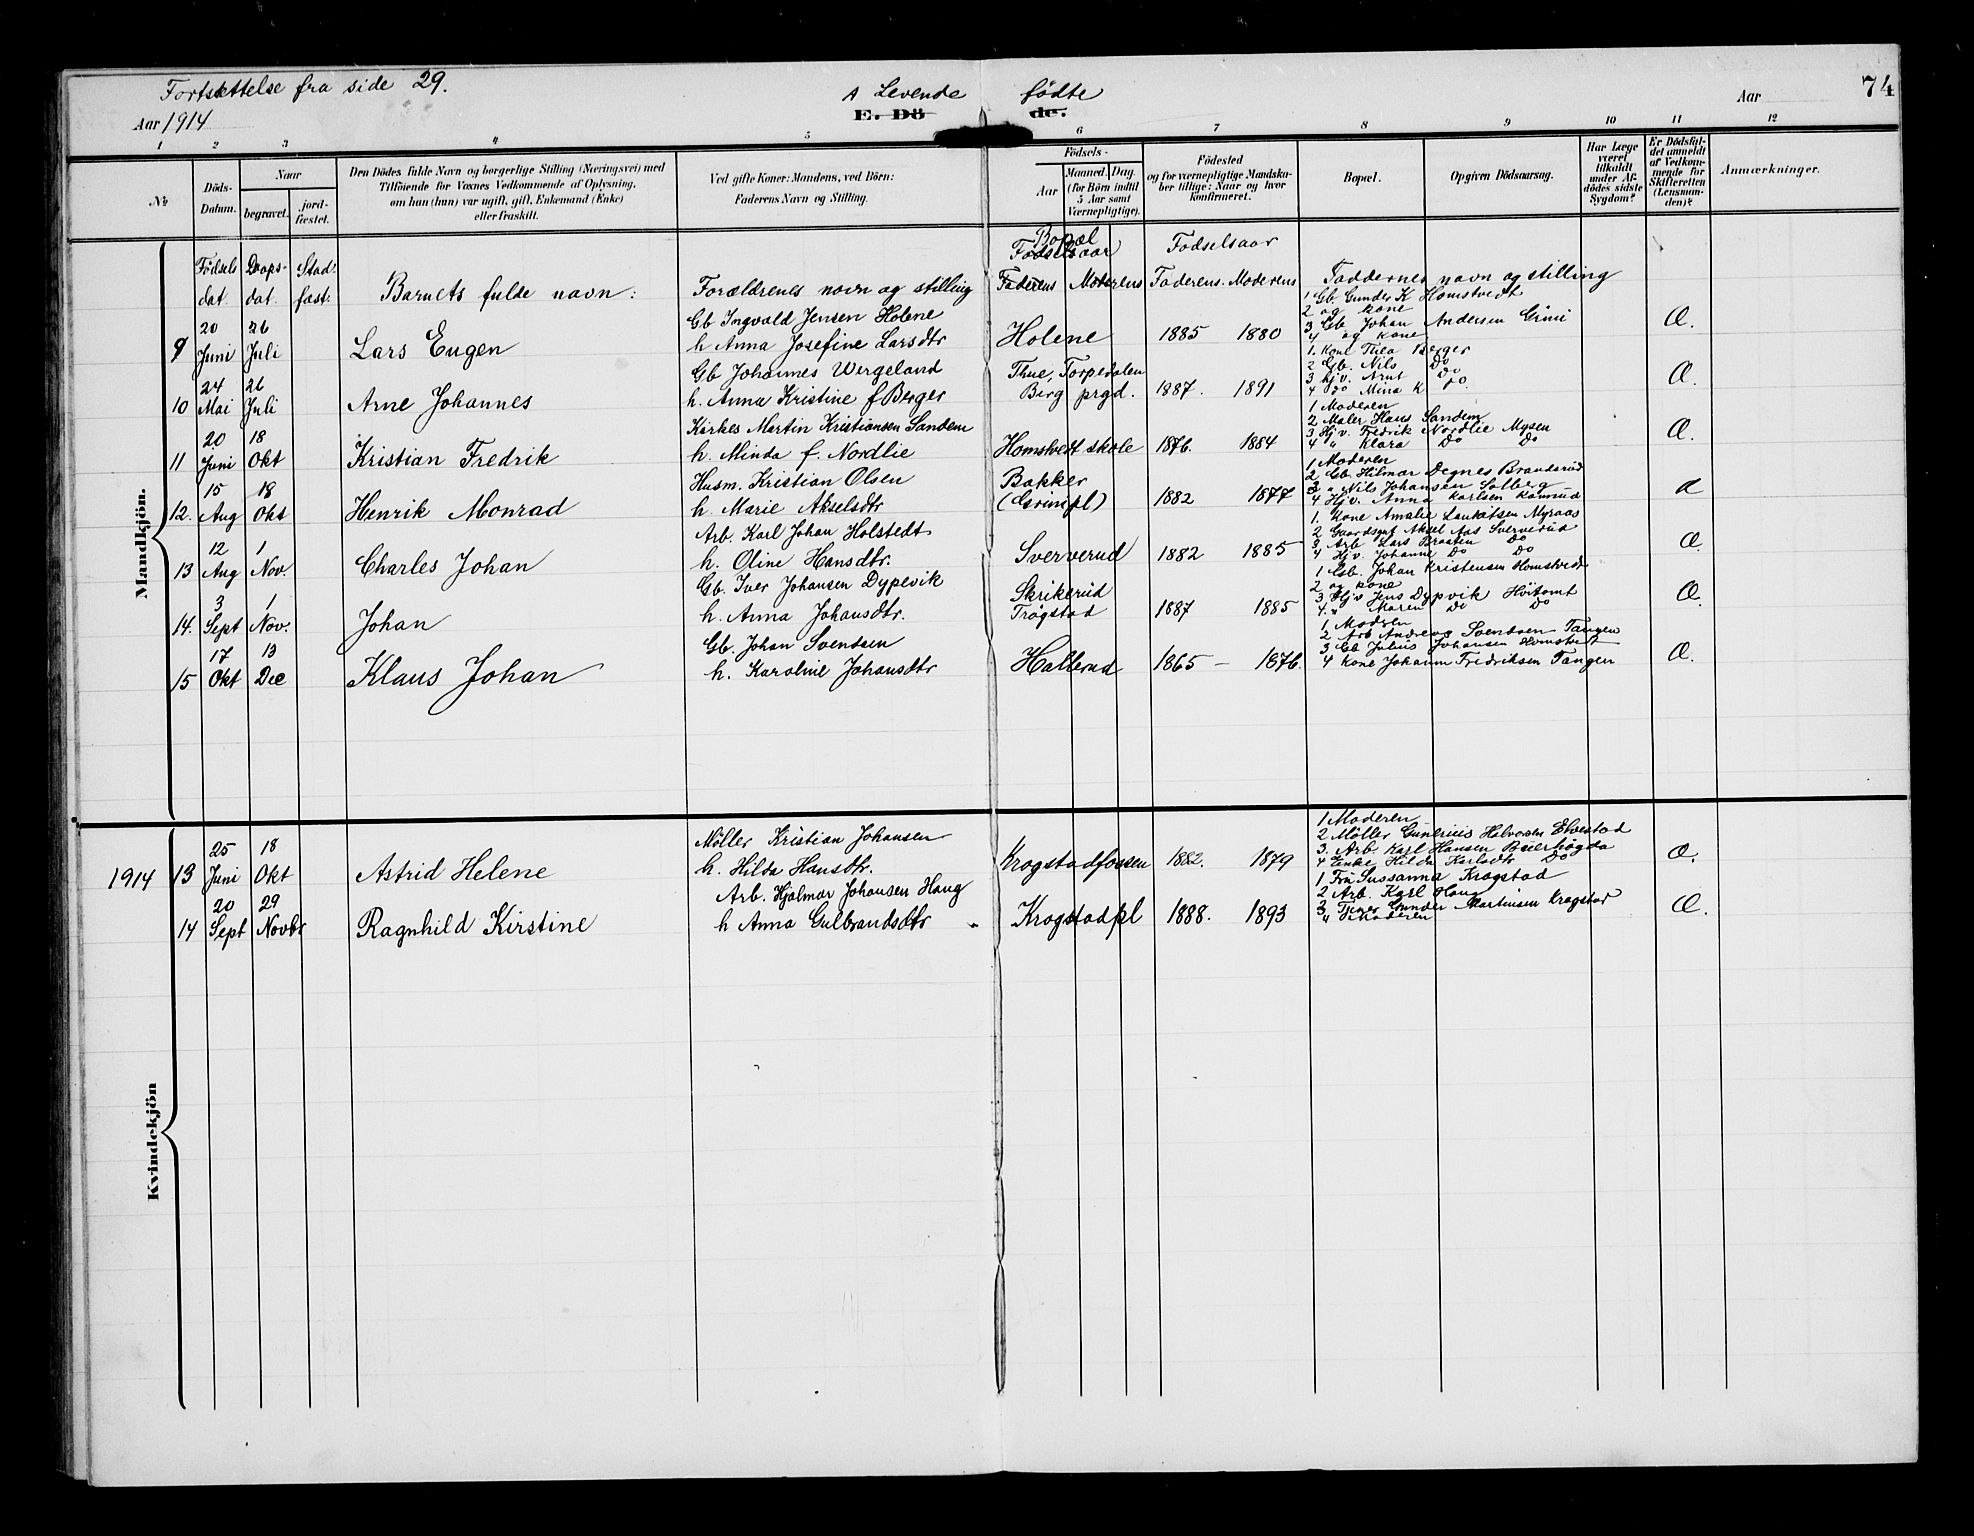 Fortsættelse fra side 29.
A Levende fødte
E. Dö de.
Aar 1914
Aar
74
1 2 3 4 5 6 7 8 9 10 11 12
No
Döds-Datum.
Naar
begravet.
jord-fæstet.
Den Dödes fulde Navn og borgerlige Stilling (Næringsvei) med
Tilföiende for Voxnes Vedkommende af Oplysning,
om han (hun) var ugift, gift, Enkemand (Enke)
eller fraskilt.
Ved gifte Koner: Mandens, ved Börn:
Faderens Navn og Stilling.
Födsels-
Aar
Maaned. Dag.
(for Börn indtil
5 Aar samt
Værnepligtige).
Födested
og for værnepligtige Mandska-
ber tillige: Naar og hvor
konfirmeret.
Bopæl.
Opgiven Dödsaarsag.
Har Læge
været
tilkaldt
under Af-
dödes sidste
Sygdom?
Er Dödsfal-
det anmeldt
af Vedkom-
mende for
Skifteretten
(Lensman-
den)?
Anmærkninger.
Mandkjön.
Fødsels dat. Daaps-dat. Stad fæst:
Barnets fulde navn:
Forældrenes navn og stilling
Bopæl
Fødselsaar
Faderens Moderens
Fødselsaar
Faderens. Moderens
Faddernes navn og stilling
9 20 Juni 26 Juli Lars Eugen
Gb Ingvald Jensen Holene
h Anna Josefine Larsdtr
Holene 1885 1880
1 Gb. Gunder K Homstvedt
2 og kone
3 Gb. Johan Andersen Grini
4 og kone
Æ.
10 24 Mai 26 Juli Arne Johannes
Gb Johannes Wergeland
h. Anna Kristine f Berger
Thue, Torpedalen
Berg prgd. 1887. 1891
1. Kone Thea Berger
2 Gb. Nils Do
3 hjv. Do
4 do Mina K do.
Æ.
11 20 Juni 18 Okt Kristian Fredrik
Kirkes Martin Kristiansen Sandem
h. Minda f. Nordlie
Homstvedt skole 1876. 1884
1 Moderen
2 Maler Hans Sandem
3 Hjv. Fredrik Nordlie Mysen
4 " Klara Do Do
Æ.
12. 15 Aug 18 Okt Henrik Monrad
Husm. Kristian Olsen
h. Marie Akselsdtr
Bakker
(Grinipl) 1882 1877
1 Moderen
2 Gb. Hilmar Degnes Brandsrud
3 " Nils Johansen Solberg
4 Hjv. Anna Karlsen
Æ
13 12 Aug 1 Nov. Charles Johan
Arb. Karl Johan Holstedt
h. Oline Hansdtr.
Sververud 1882 1885
1. Kone Amalie Lauritsen Myraas
2 Gaardsmt Aksel Aas Sververud
3 Arb Lars Braaten Do
4 Hjv. Johanne Do Do
Æ.
14. 3 Sept 1 Nov. Johan
Gb. Iver Johansen Dypevik
h. Anna Johansdtr.
Skrikerud
Trøgstad 1887 1885
1 Gb. Johan Kristensen Homstvedt
2 og kone
3 Hjv Jens Dypvik Høitomt
4. " Maren Do Do
Æ.
15 17 Okt 13 Dec Klaus Johan
Gb. Johan Svendsen
h. Karoline Johansdtr
Hallerud 1865 – 1876.
1 Modren
2 Arb Andreas Svendsen Tangen
3 Gb Julius Johansen Homstvedt
4 Kone Johanne Fredriksen Tangen
Æ.
Kvindekjön
1914 13 25 Juni 18 Okt Astrid Helene
Møller Kristian Johansen
h. Hilda Hansdtr.
Krogstadfossen 1882. 1879
1 Moderen
2 Møller Halvorsen Elvestad
3. Arb. Karl Hansen Beierhøgda
4 Enke Hilda Karlsdtr Do
Æ.
14 20 Sept 29 Novbr Ragnhild Kirstine
Arb. Hjalmar Johansen Haug
h Anna Gulbrandsdtr
Krogstadpl 1888. 1893
1 Fru Sussanna Krogstad
2 Arb. Karl Haug
3 Gunder Martinsen Krogstad
4 Moderen
Æ.